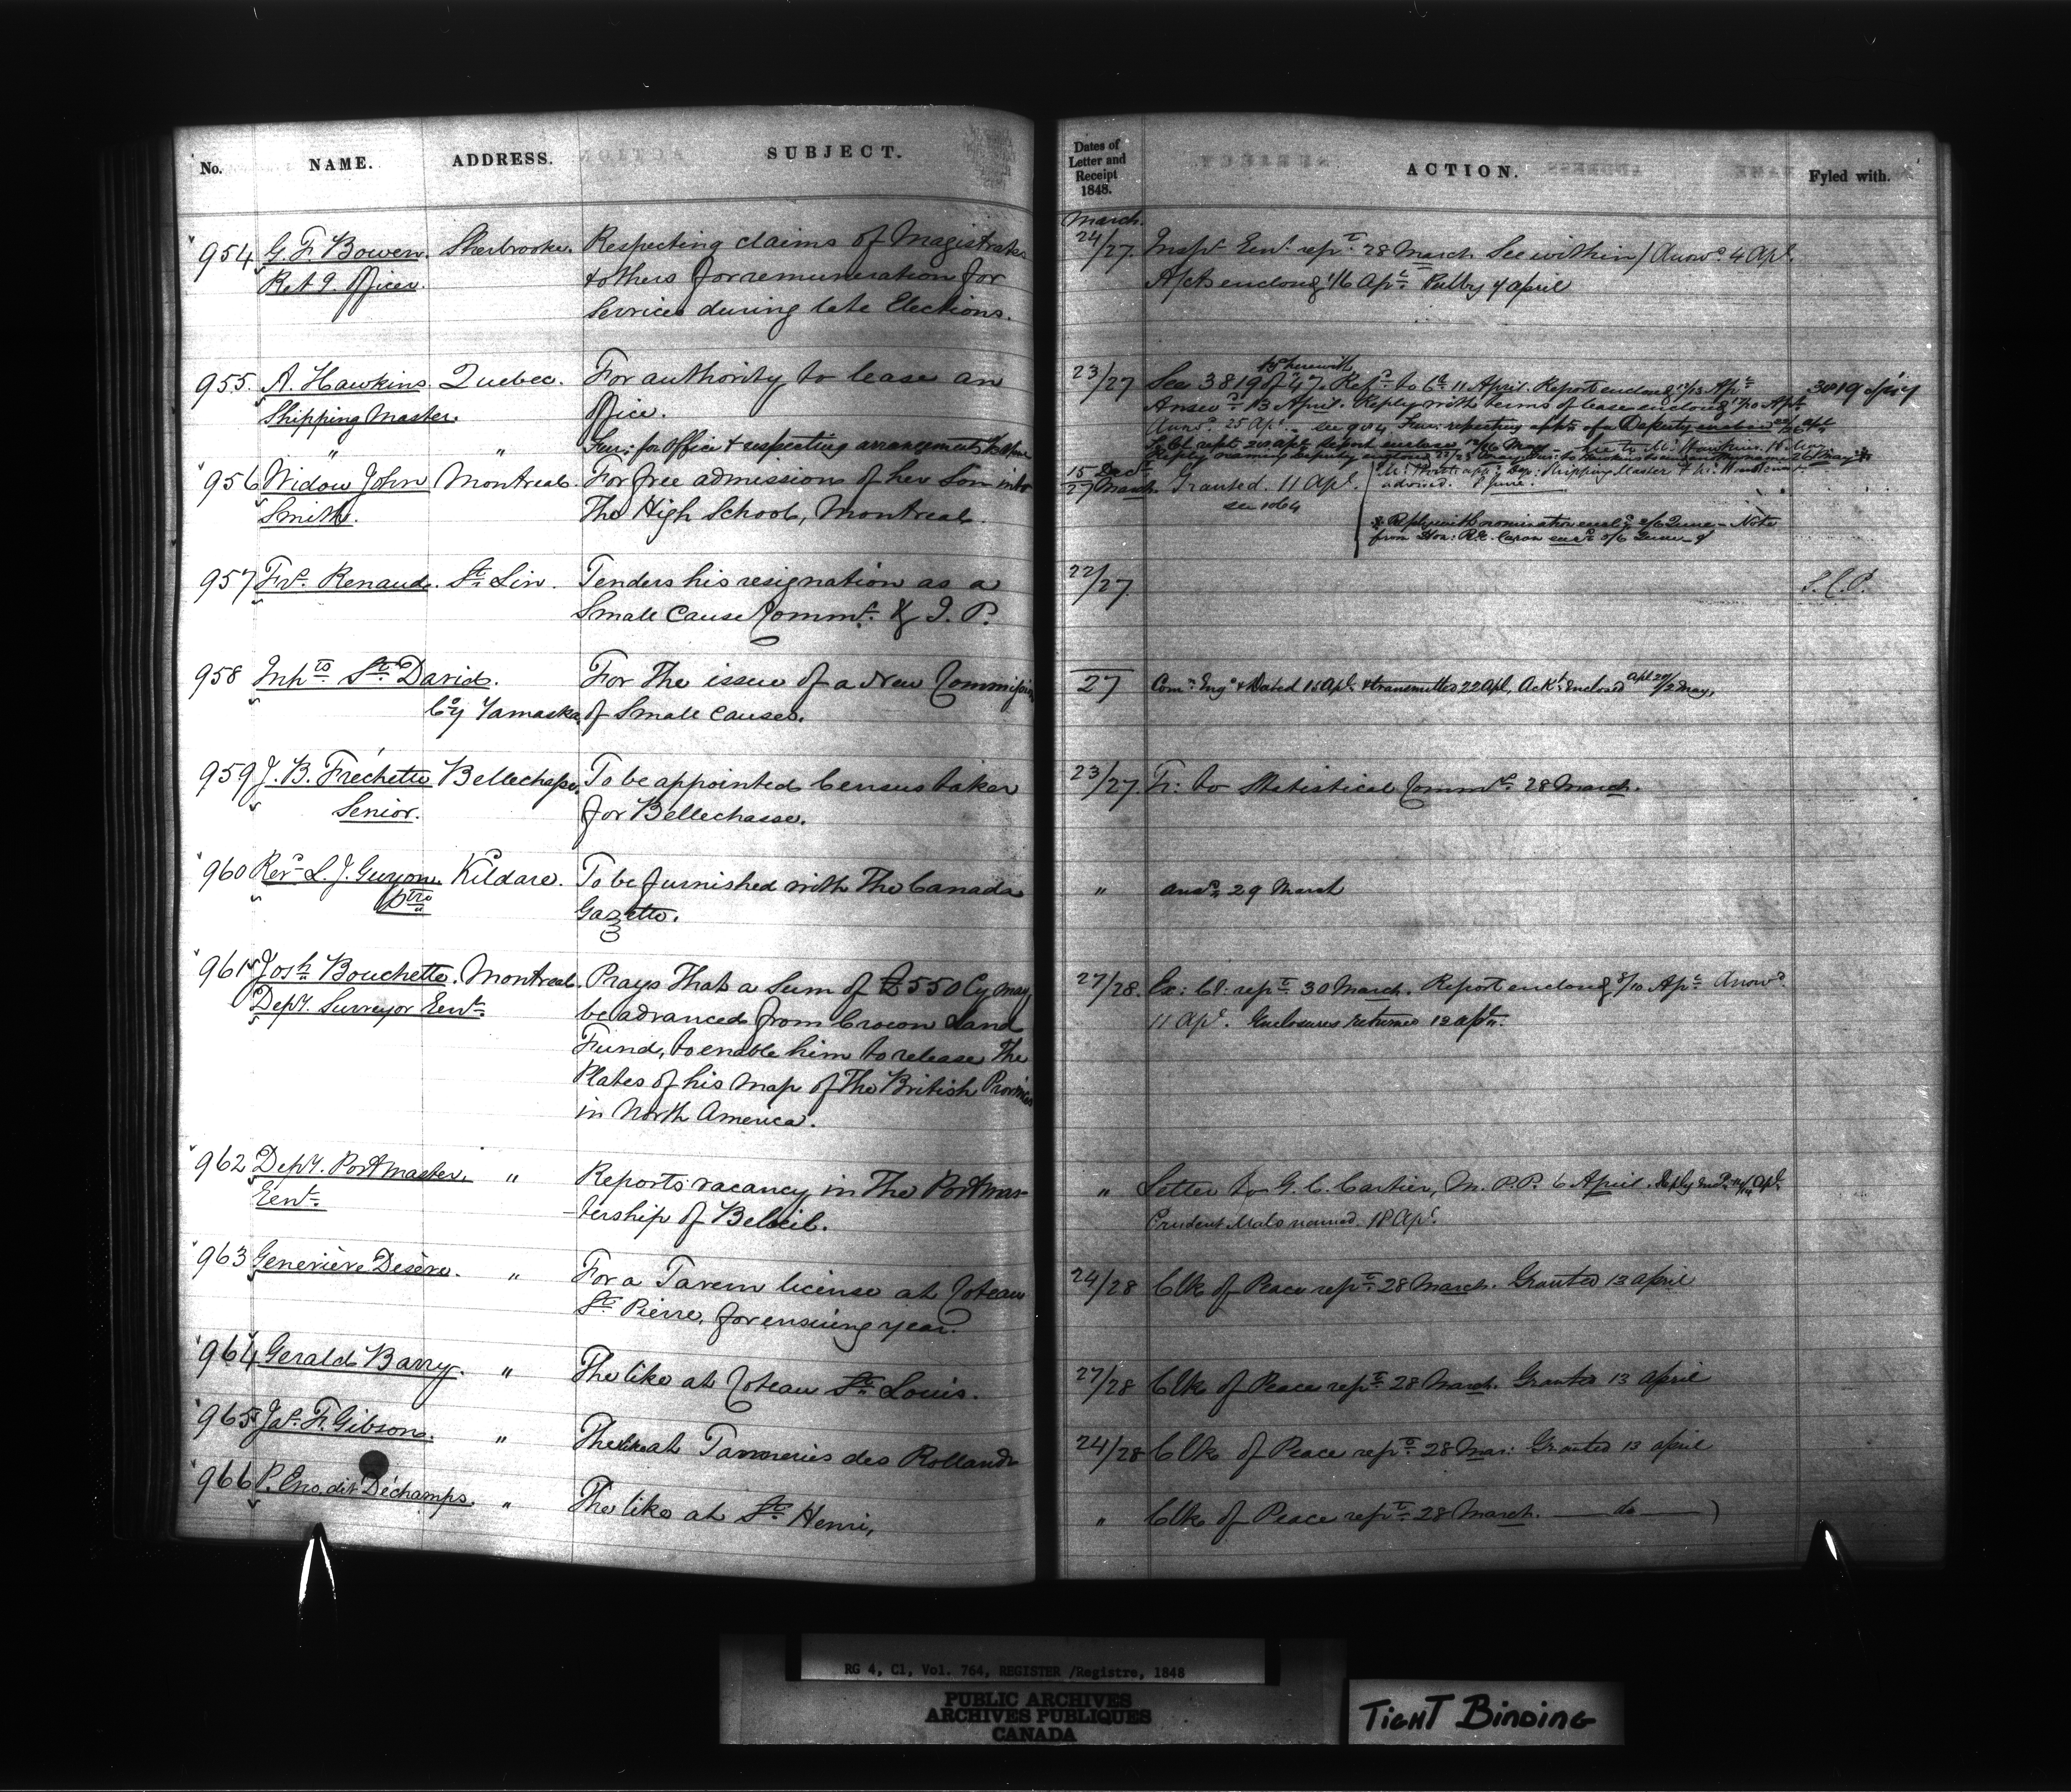 No. NAME. ADDRESS. SUBJECT. Dates of Letter and Receipt 1848. ACTION. Fyled with.
March.
954 G. F. Bowen Sherbrooke. Respecting claims of Magistrates 24/27. Insp. Genl. repd. 28 March See within / Answd. 4 Apl.
Retg. Officer. & others for remuneration for 16 Apl. 4 april
Services during late Elections.
955. A. Hawkins Quebec. For authority to lease an 23/27 See 3819 of 47 herewith. Refd. to 11 April. Report enclosg. 12/13 Apl. 3819 of 47
Shipping Master. Office. Answd. 13 April. Reply with terms of lease enclosg. Apl.
" " for Office & respecting arrangements Answd. 25 Apl. see 904 respecting appt. of a Deputy
956 Widow John Montreal. For free admission of her Son into 15 Decr. / 27 March Granted. 11 Apl.
Smith. The High School, Montreal. see 1064
advised. 8 June.
* Reply with nomination 2/6 June - Note
from Hon: R.E. Caron 5/6 June
957 Frs. Renaud. St. Lin. Tenders his resignation as a 22/27 S.C.C.
Small Cause Commr. & J. P.
958 Inhts. St. David. For The issue of a New Commission 27 Comn. Engd. & Dated 15 Apl. & transmitted 22 Apl, Ackt. Enclosed Apl 29/2 May,
Coy. Yamaska. of Small Causes.
959 J. B. Fréchette Bellechasse. To be appointed Census taker 23/27. Tr: to Statistical Commrs. 28 March.
Senior. for Bellechasse.
960 Revd. L. J. Guyon Kildare. To be furnished with The Canada " Answd. 29 March
ptre Gazette.
961 Josh. Bouchette. Montreal. Prays That a Sum of £550 Cy may 27/28. Ex: Cl: repd. 30 March. Report enclosg. 8/10 Apl. Answd.
Depy. Surveyor Genl. be advanced from Crown Land 11 Apl. Enclosures returned 12 apl.
Fund, to enable him to release The
Plates of his Map of The British Provinces
in North America.
962 Depy. Postmaster. " Reports vacancy in The Postmas- " Letter to G. E. Cartier, M. P. P. 6 April. Reply Apl.
Genl. -tership of Belœil. Prudent Malo named. 18 Apl.
963 Geneviève Désère. " For a Tavern license at Coteau 24/28 Clk of Peace repd. 28 March. Granted 13 april
St. Pierre, for ensuing year.
964 Gerald Barry. " The like at Coteau St. Louis. 27/28 Clk of Peace repd. 28 March. Granted 13 april
965 Jas. F. Gibson. " The like at Tanneries des Rollands 24/28 Clk of Peace repd. 28 Mar: Granted 13 april
966 P. Eno, dit Déchamps. " The like at St. Henri, " Clk of Peace repd. 28 March. — do —
RG 4, C1, Vol. 764, REGISTER /Registre, 1848
PUBLIC ARCHIVES
ARCHIVES PUBLIQUES
CANADA
TIGHT BINDING